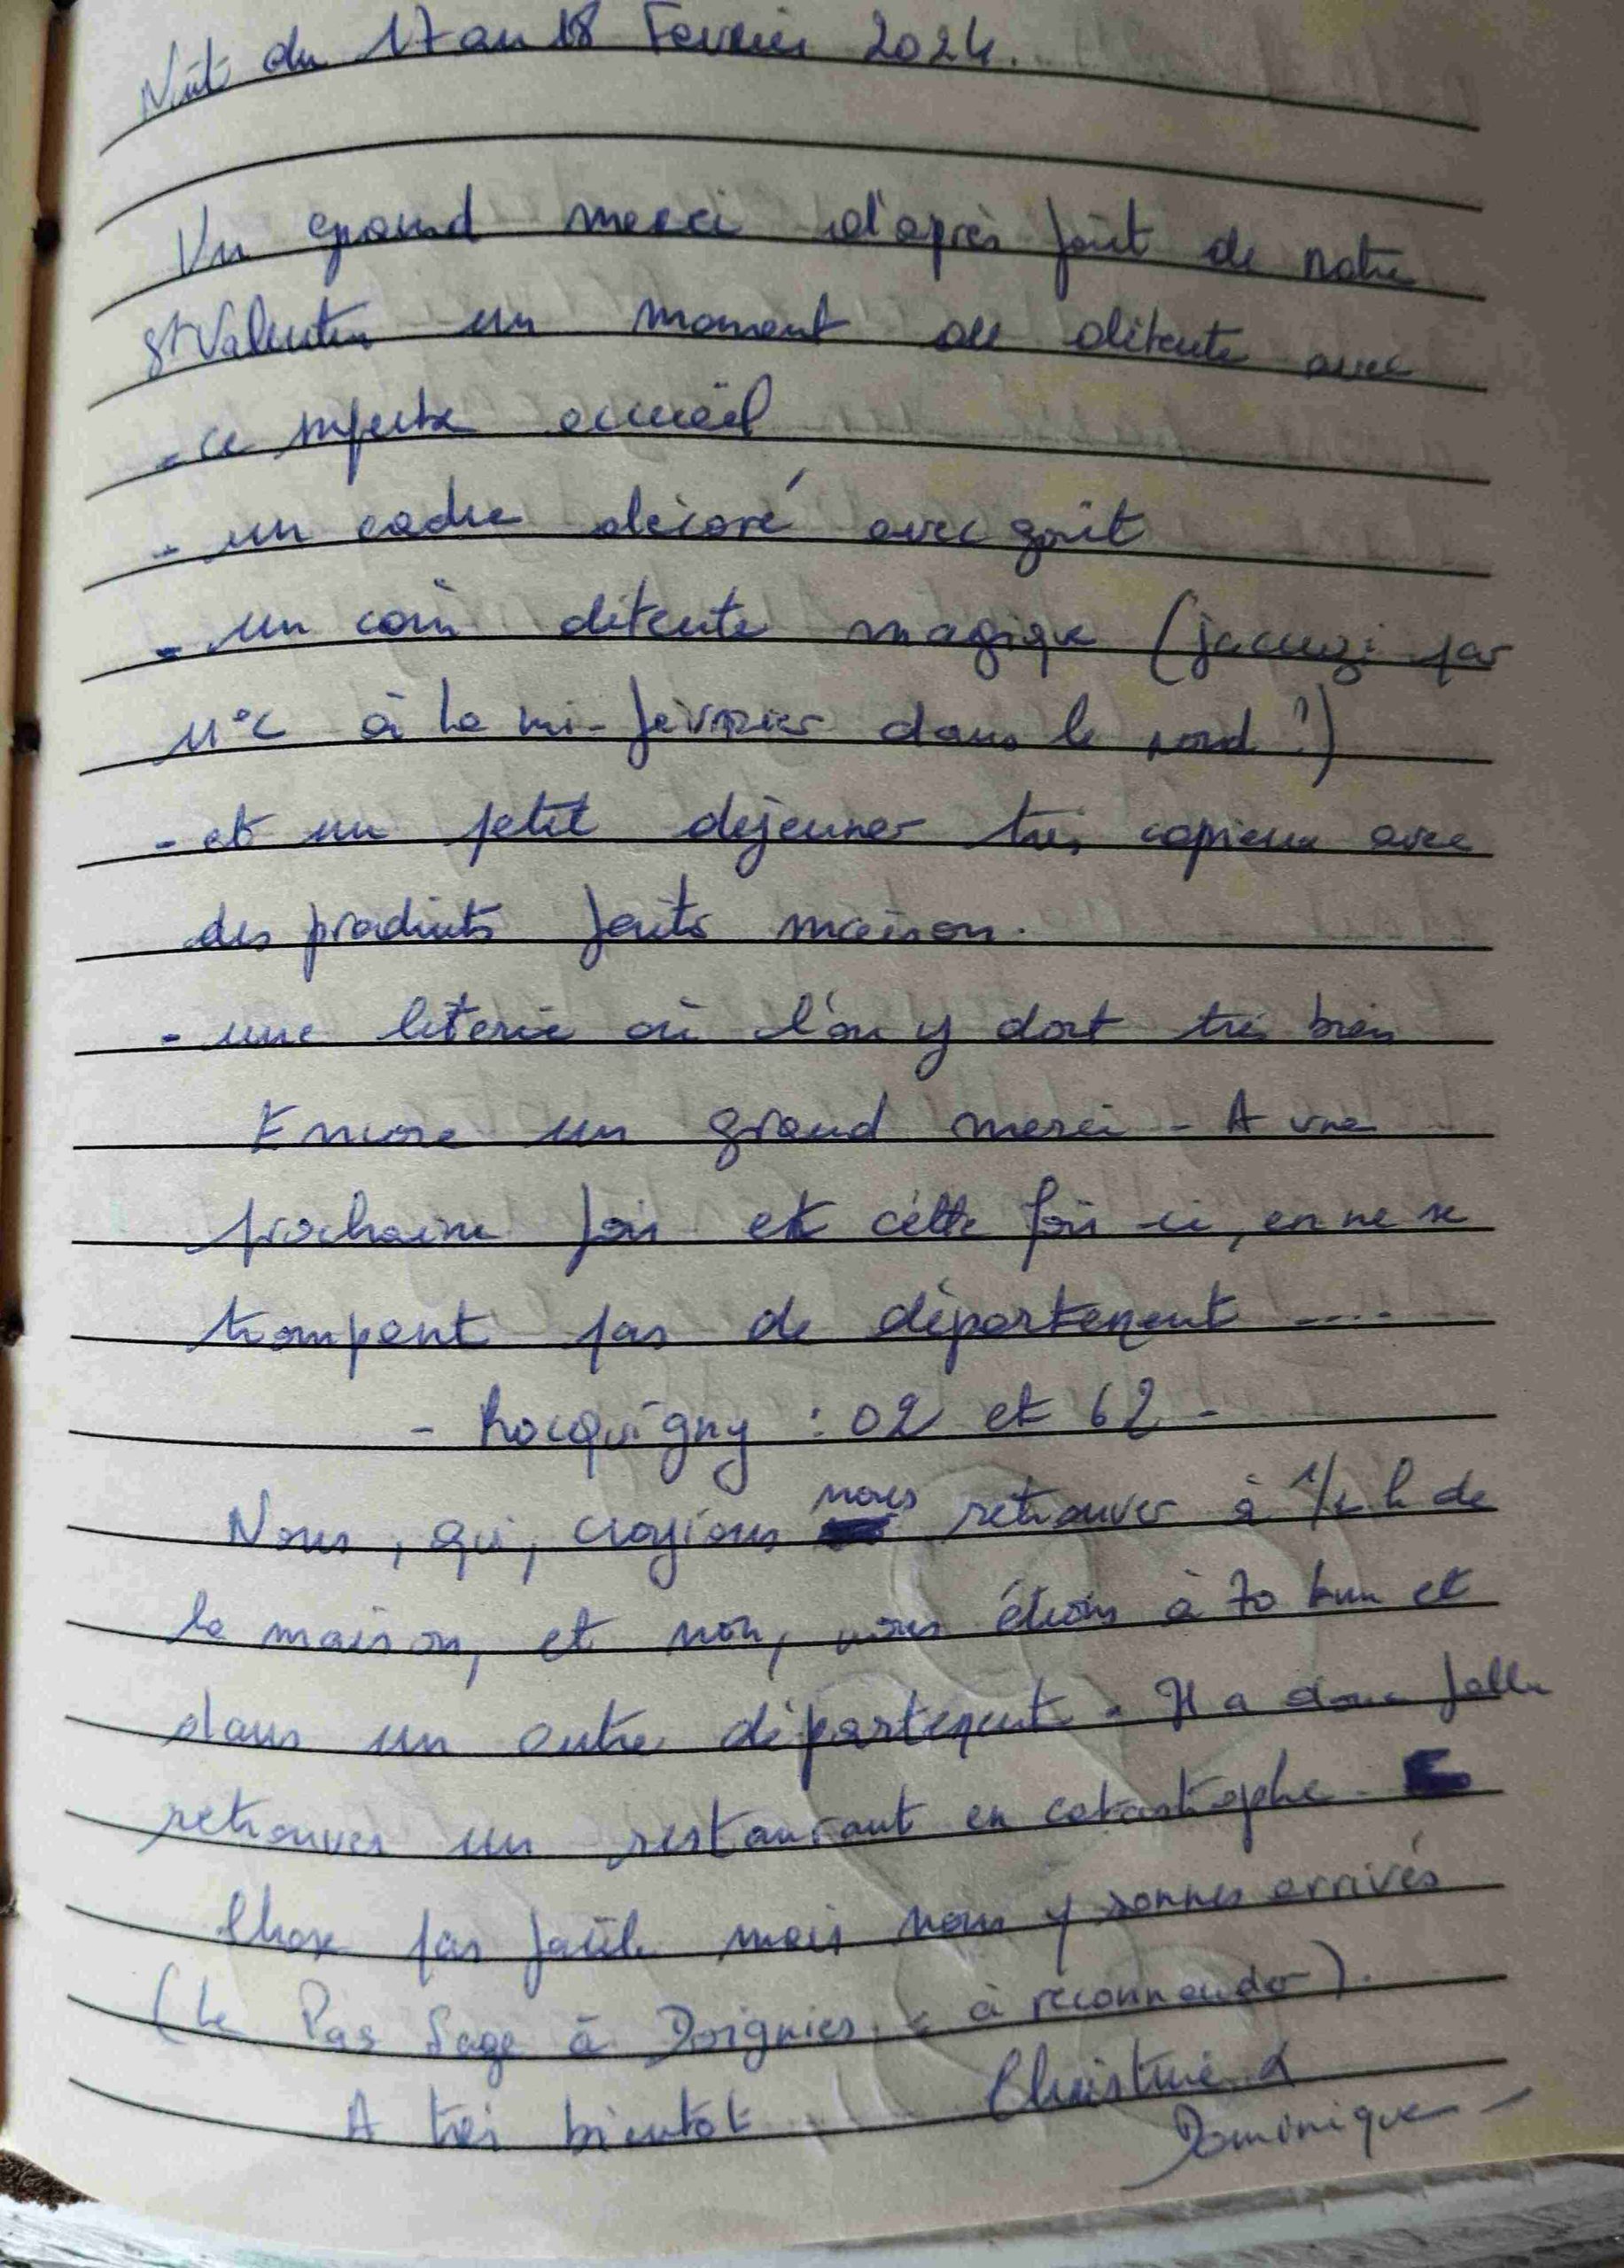 Nuit du 17 au 18 Fevrier 2024.
Un grand merci d'après fait de notre
St Valentin un moment de détente avec
- ce superbe accueil
- un cadre décoré avec goût
- un coin détente magique (jacuzi par
11°C à la mi-février dans le nord !)
- et un petit déjeuner très copieux avec
des produits faits maison.
- une literie où l'on y dort très bien
Encore un grand merci - A une
prochaine fois et cette fois-ci, en ne se
trompant pas de département ....
- Rocquigny : 02 et 62 -
Nous, qui, croyions nous retrouver à 1/2 h de
la maison, et non, nous étions à 70 km et
dans un autre département. Il a donc fallu
retrouver un restaurant en catastrophe.
Chose pas facile mais nous y sommes arrivés
(Le Pas Sage à Doignies : à recommander).
A très bientôt Christine &
Dominique